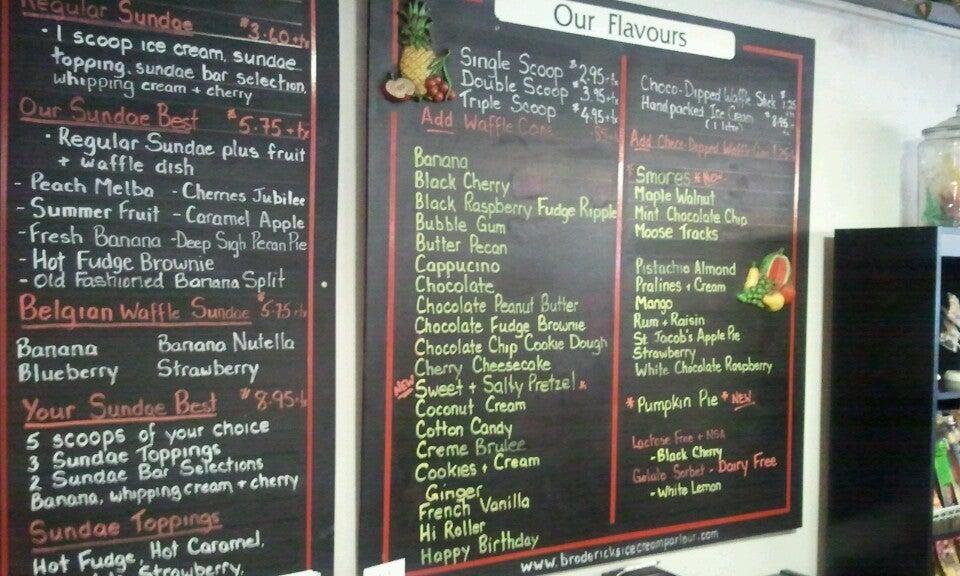 Regular Sundae $3.60+tx
• 1 scoop ice cream, sundae
topping, sundae bar selection,
whipping cream + cherry
Our Sundae Best $5.75+tx
• Regular Sundae plus fruit
+ waffle dish
- Peach Melba - Cherries Jubilee
- Summer Fruit - Caramel Apple
- Fresh Banana - Deep Sigh Pecan Pie
- Hot Fudge Brownie
- Old Fashioned Banana Split
Belgian Waffle Sundae $5.75+tx
Banana Banana Nutella
Blueberry Strawberry
Your Sundae Best $8.95+tx
5 scoops of your choice
3 Sundae Toppings
2 Sundae Bar Selections
Banana, whipping cream + cherry
Sundae Toppings
Hot Fudge, Hot Caramel,
Strawberry,
Our Flavours
Single Scoop $2.95+tx
Double Scoop $3.95+tx
Triple Scoop $4.95+tx
Add Waffle Cone
Banana
Black Cherry
Black Raspberry Fudge Ripple
Bubble Gum
Butter Pecan
Cappucino
Chocolate
Chocolate Peanut Butter
Chocolate Fudge Brownie
Chocolate Chip Cookie Dough
Cherry Cheesecake
NEW Sweet + Salty Pretzel *
Coconut Cream
Cotton Candy
Creme Brulee
Cookies + Cream
Ginger
French Vanilla
Hi Roller
Happy Birthday
Choco-Dipped Waffle Stick $1.25
Handpacked Ice Cream $8.95
(1 litre)
Add Choco-Dipped Waffle Cone
*Smores *NEW
Maple Walnut
Mint Chocolate Chip
Moose Tracks
Pistachio Almond
Pralines + Cream
Mango
Rum + Raisin
St Jacob's Apple Pie
Strawberry
White Chocolate Raspberry
*Pumpkin Pie * NEW
Lactose Free + NSA
- Black Cherry
Gelato Sorbet - Dairy Free
- White Lemon
www.brodericksicecreamparlour.com